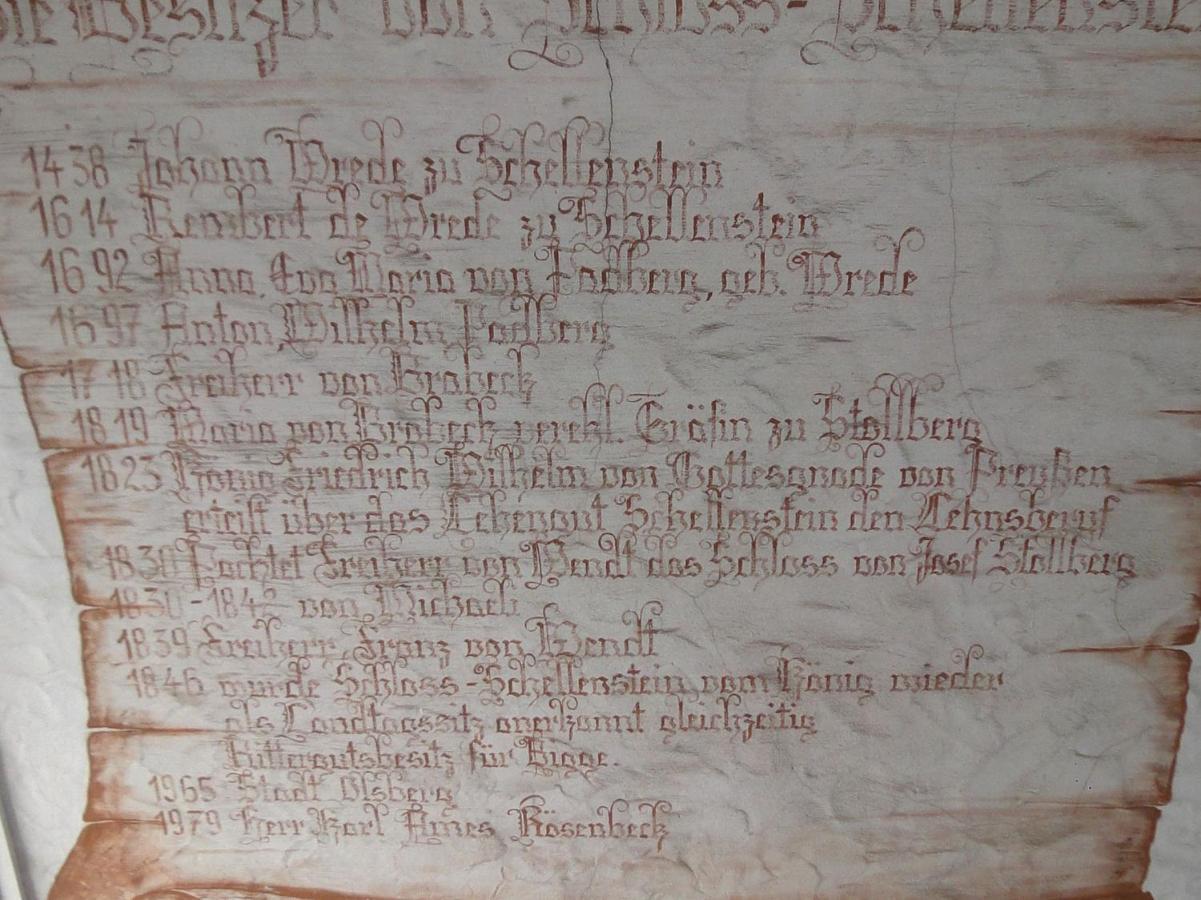 Die Besitzer von Schloss-Schellenste
1438 Johann Wrede zu Schellenstein
1614 Rembert de Wrede zu Schellenstein
1692 Anna, Eva Maria von Padberg, geb. Wrede
1697 Anton, Wilhelm Padberg
1718 Freiherr von Brabeck
1819 Maria von Brabeck verehl. Gräfin zu Stollberg
1823 König Friedrich Wilhelm von Gottesgnade von Preußen
erteilt über das Lehengut Schellenstein den Lehnsberuf
1830 Pachtet Freiherr von Wendt das Schloss von Josef Stollberg
1830-1842 von Michaeli
1839 Freiherr Franz von Wendt
1846 wurde Schloss-Schellenstein vom König wieder
als Landtagssitz anerkannt gleichzeitig
Rittergutsbesitz für Bigge.
1965 Stadt Olsberg
1979 Herr Karl Ames Rösenbeck